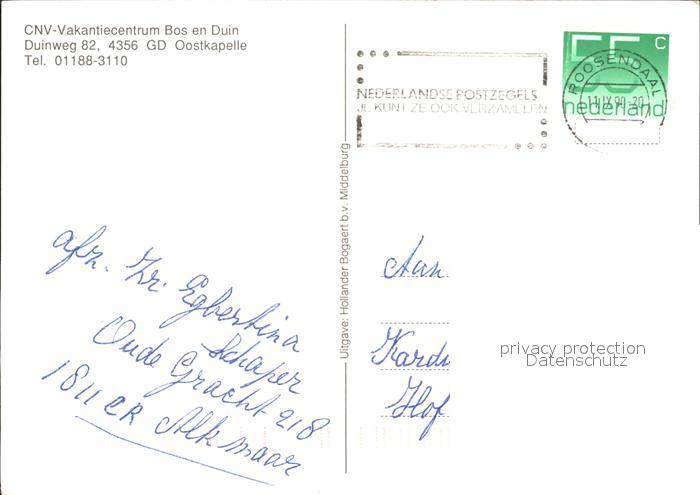 CNV-Vakantiecentrum Bos en Duin
Duinweg 82, 4356 GD Oostkapelle
Tel. 01188-3110
NEDERLANDSE POSTZEGELS
JE KUNT ZE OOK VERZAMELEN
55 c
nederland
ROOSENDAAL
11.IX.90.-20
Uitgave: Hollander Bogaert b.v. Middelburg
afz. Zr. Egbertina
Schaper
Oude Gracht 218
1811 CR Alkmaar
Aan
Kardi
Hof
privacy protection
Datenschutz